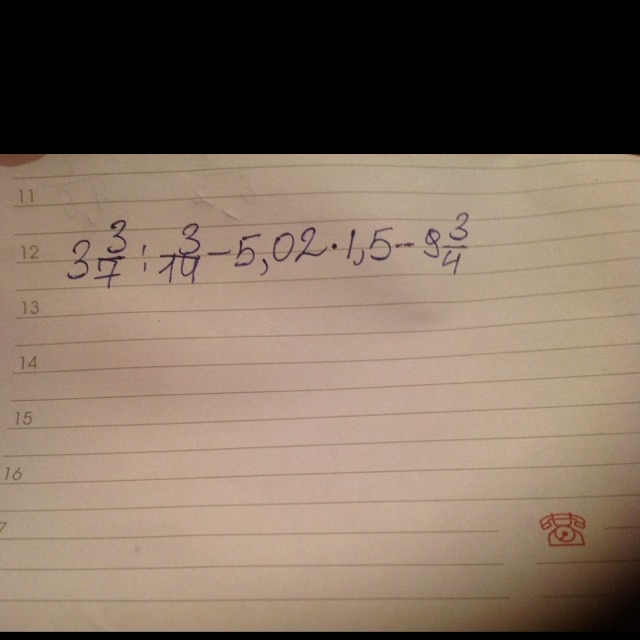 11
12 3 3/7 : 3/14 - 5,02 · 1,5 - 9 3/4
13
14
15
16
7